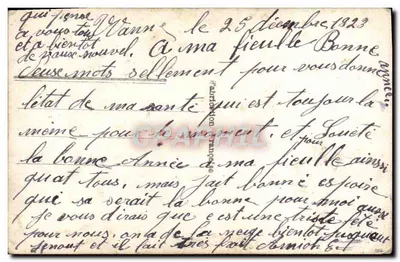 qui pense
a vous tous
et a bientot
de vause nouvel.
Vanne le 25 diecembre 1923
A ma fieulle Bonne
deuse mots sellement pour vous donne
l'état de ma santé qui est toujour la
même pour le moment. et pour Soueté
la bonne Année a ma fieulle ainssi
quat tous, mais jait bonne espoire
que sa serait la bonne pour moi
je vous dirais que c'est une triste fête
pour nous, on a de la neige bientot jusquaut
genout et il fait très
Fabrication Française